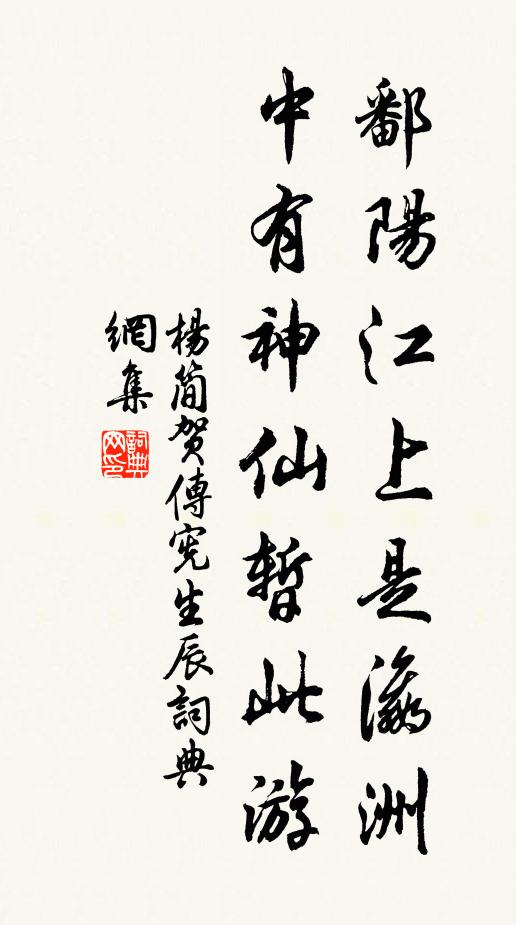 鄱陽江上是瀛洲
中有神仙暫此游
楊簡賀傅宪生辰詞典
網集
詞典网印